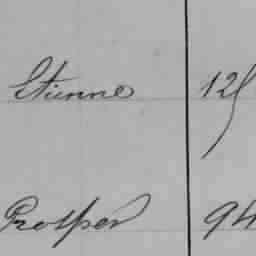 Etienne 125
Prosper 94